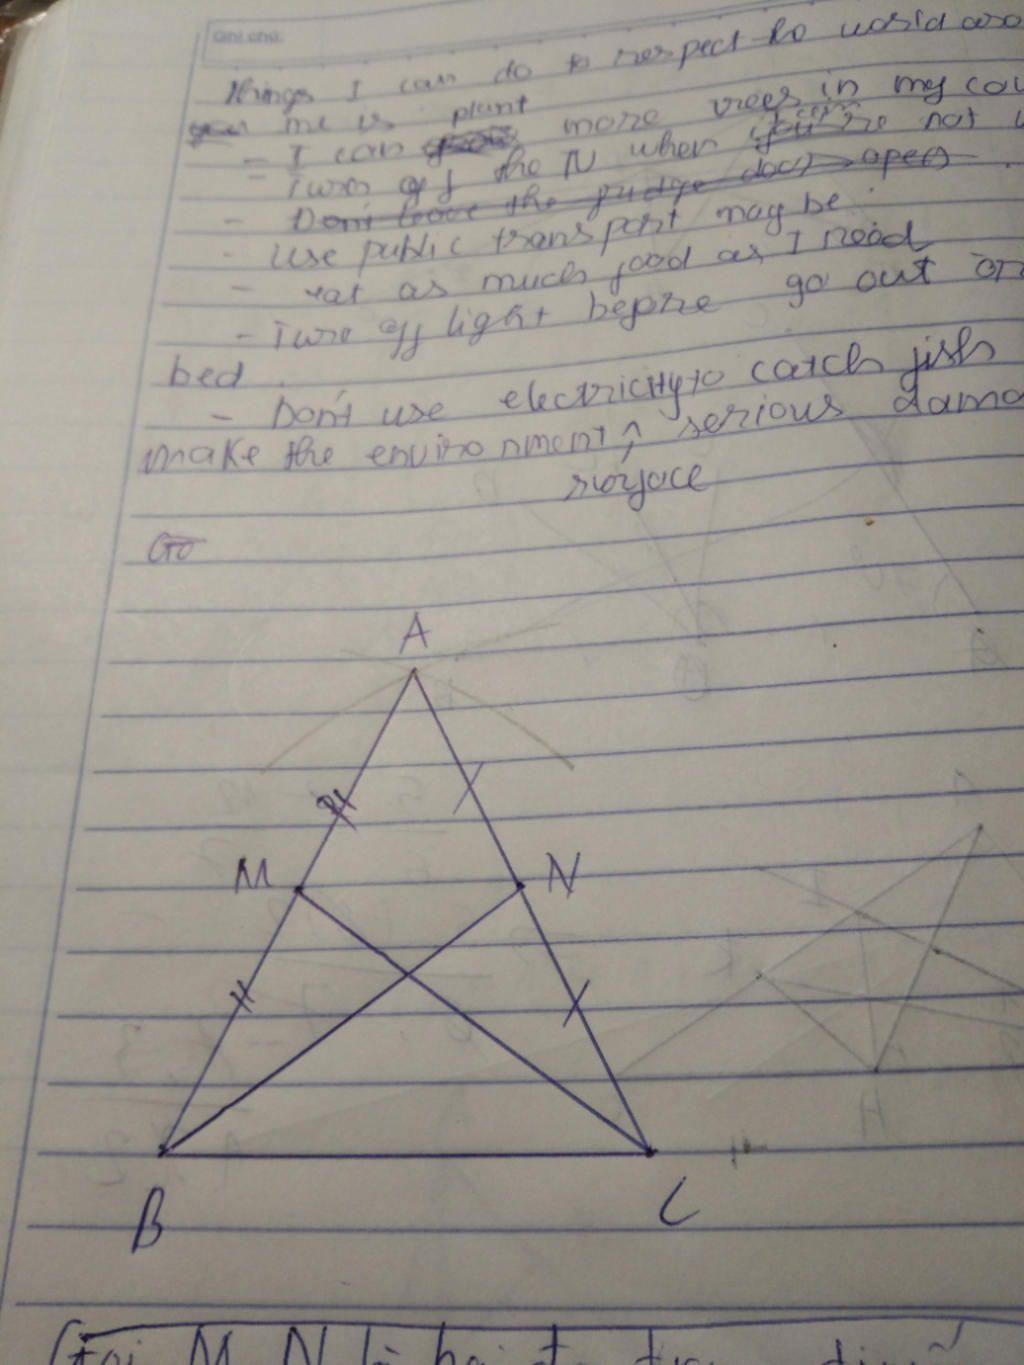 Ghi chú:
things I can do to respect to world aro
me is plant
- I can more trees in my cou
- Turn off the N when you're not u
- Don't leave the fridge door open
- Use public transport may be.
- eat as much food as I need
- Turn off light before go out or
bed.
- Don't use electricity to catch fish
make the environment serious dama
surface
Go
A
M N
B C
Gọi M N là hai